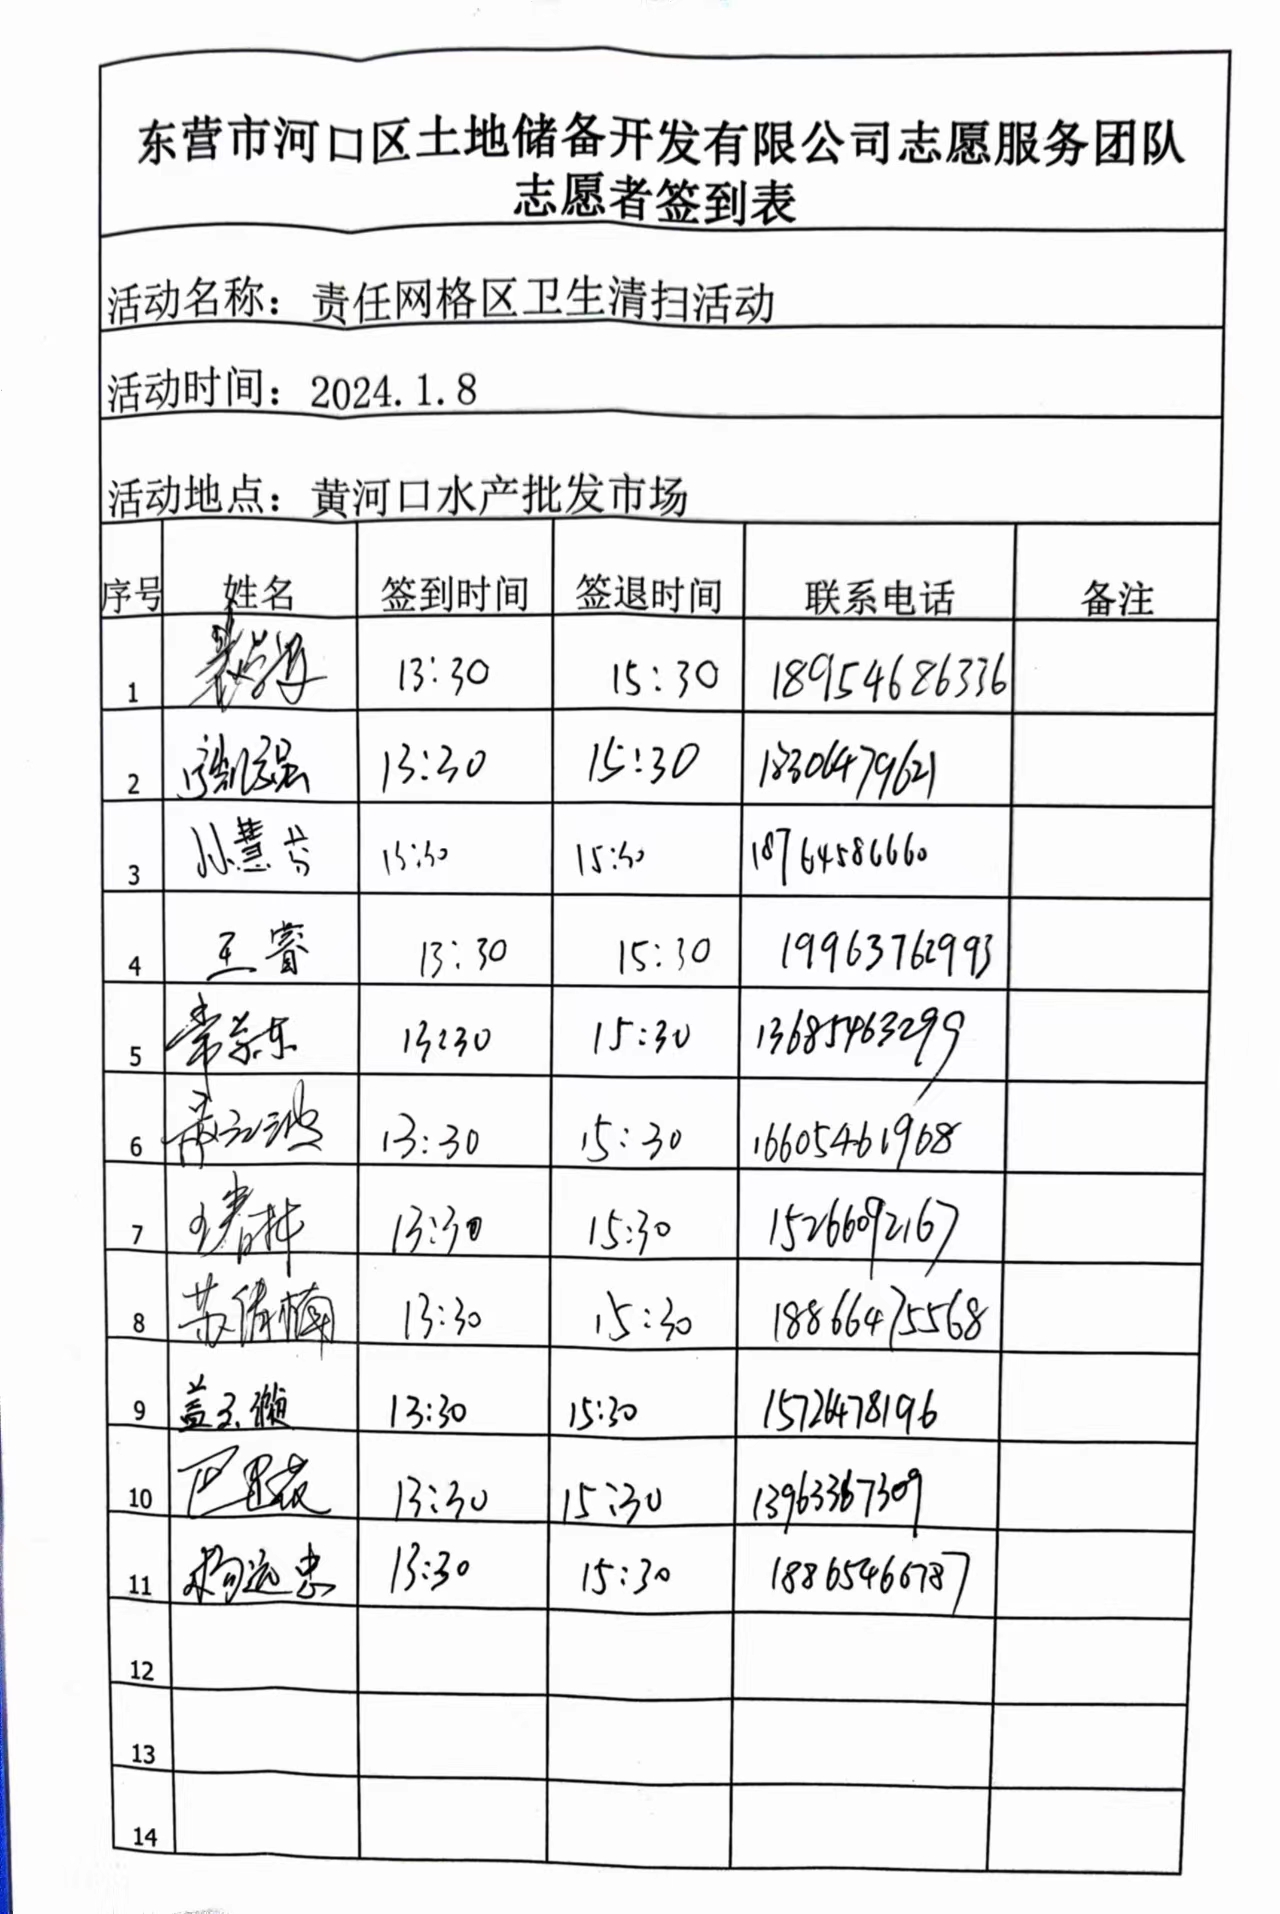 东营市河口区土地储备开发有限公司志愿服务团队
志愿者签到表
活动名称：责任网格区卫生清扫活动
活动时间：2024.1.8
活动地点：黄河口水产批发市场
序号 姓名 签到时间 签退时间 联系电话 备注
1 13:30 15:30 18954686336
2 13:30 15:30 18306479621
3 孙慧芳 13:30 15:30 18764586660
4 王睿 13:30 15:30 19963762993
5 13:30 15:30 13685463299
6 13:30 15:30 16605461968
7 13:30 15:30 15266092167
8 苏倩楠 13:30 15:30 18866475568
9 盖玉 13:30 15:30 15726478196
10 13:30 15:30 13963367309
11 杨远忠 13:30 15:30 18865466787
12
13
14